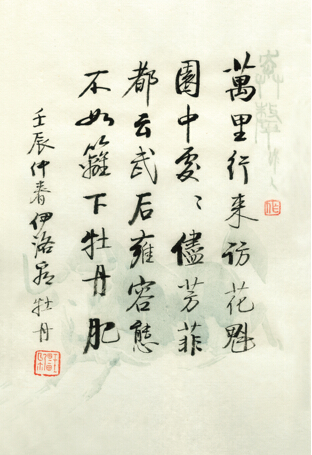 萬里行来访花魁
園中處〻儘芳菲
都云武后雍容態
不如籬下牡丹肥
壬辰仲春伊洛看牡丹